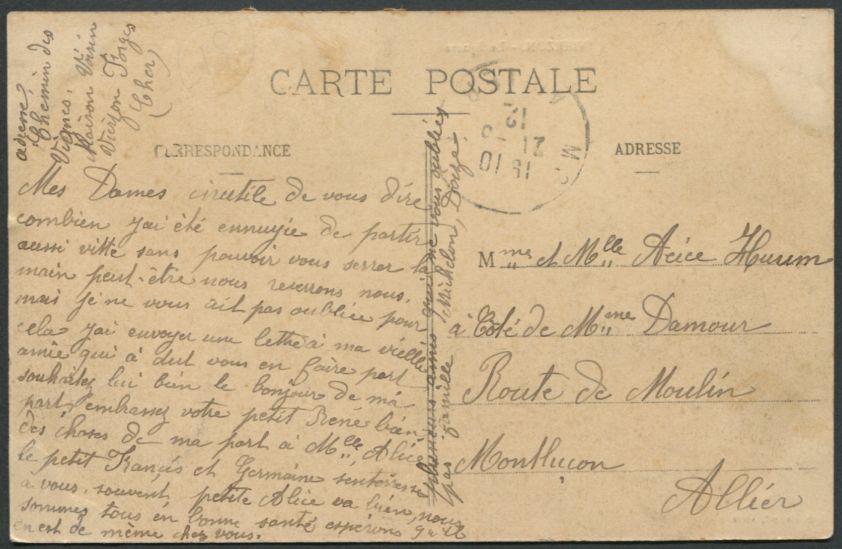 adresse,
Chemin des
Vignes,
Maison Voisin
Vierzon Forges
(Cher)
CARTE POSTALE
CORRESPONDANCE
ADRESSE
12
21 - 3
19 10
Mes Dames inutile de vous dire
combien j'ai été ennuyie de partir
aussi vitte sans pouvoir vous serrer la
main peut-être nous reverrons nous.
mais je ne vous ait pas oublice pour
cela j'ai envoyer une lettre à ma vielle
amie qui à dut vous en faire part
souhaitez lui bien le bonjour de ma
part, embrassez votre petit René bien
des choses de ma part à Mlle Alice
le petit Françis et Germaine s'interesse
a vous souvent, petite Alice va bien, nous
sommes tous en bonne santé esperons qu'il
en est de même chez vous.
plusieurs amis qui ne vous oublies
pas famille Michelon, Doizé.
Mmes et Mlle Alice Huum
à Coté de Mme Damour
Route de Moulin
Montluçon
Alliér